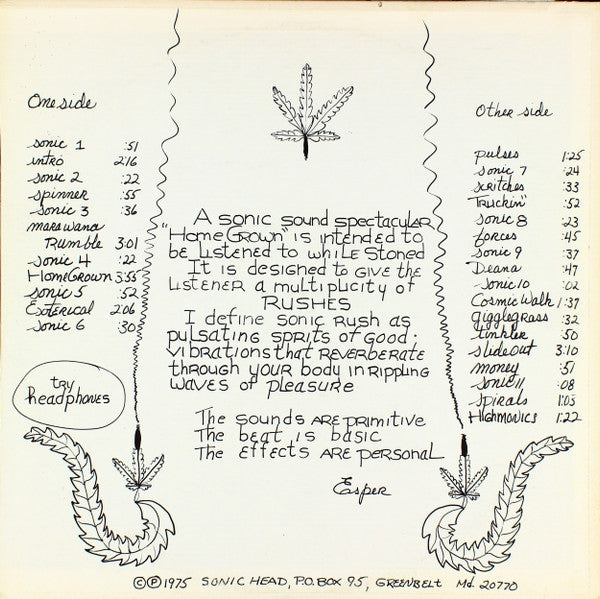 One side
sonic 1 :51
intro 2:16
sonic 2 :22
spinner :55
sonic 3 :36
marawana
Rumble 3:01
sonic 4 :22
HomeGrown 3:55
sonic 5 :52
Esoterical 2:06
sonic 6 :30
try
headphones
A sonic sound spectacular
"HomeGrown" is intended to
be listened to while stoned
It is designed to give the
listener a multiplicity of
RUSHES
I define sonic rush as
pulsating sprits of good
vibrations that reverberate
through your body in rippling
waves of pleasure
The sounds are primitive
The beat is basic
The effects are personal
Esper
Other side
pulses 1:25
sonic 7 :24
scritches :33
Truckin' :52
sonic 8 :23
forces :45
sonic 9 :37
Deana :47
sonic 10 :02
Cosmic Walk 1:37
gigglegrass :32
tinkler :50
slide out 3:10
money :51
sonic 11 :08
spirals 1:03
Highmonics 1:22
©℗1975 SONIC HEAD, P.O. BOX 95, GREENBELT Md. 20770